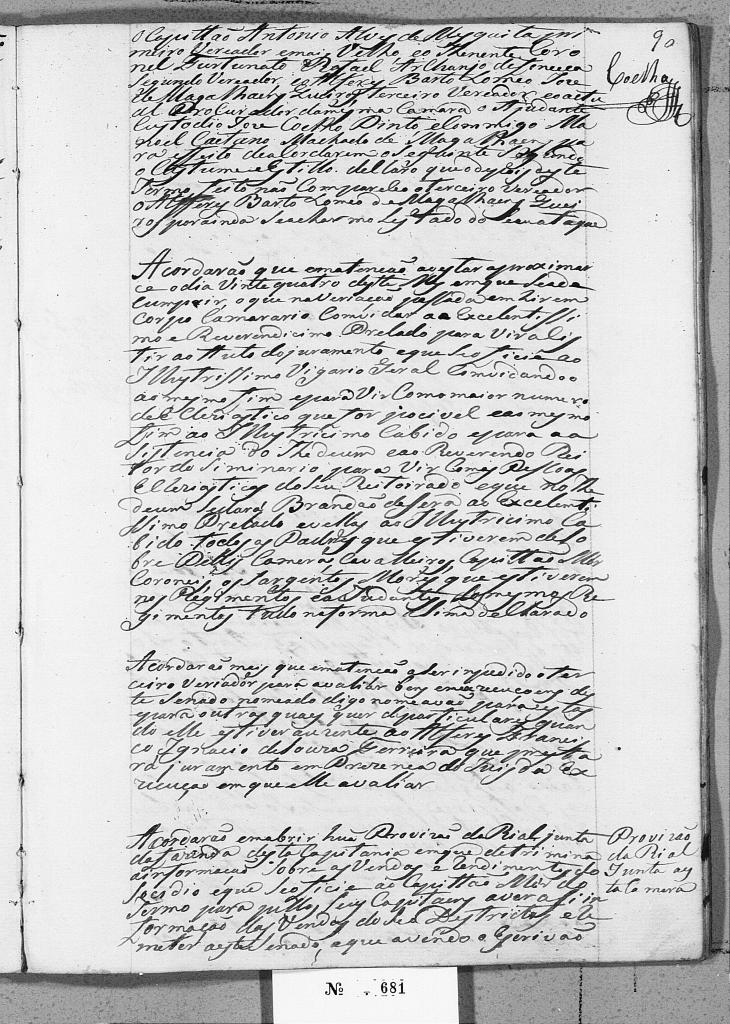 90
Coelho
o Capittão Antonio Alvez de Mesquita pri
meiro Vereador e mais Velho, e o Thenente Coro
nel Furtunato Rafael Archanjo da Fonceca
segundo Vereador, e o Alferes Bartolomeo Jose
de Magalhaens Queiros terceiro Vereador, e o
Procurador da mesma Camara o Ajudante
Custodio Jose Coelho Pinto, e Comigo Ma
noel Caetano Machado de Magalhaens pa
ra efeito de acordarem o seguinte segundo
o Custume e estillo declaro que
termo serto não Compareceo o terceiro Vereador
o Alferes Bartolomeo de Magalhaens Quei
ros por ainda se achar mo Lestado do seu ataque
Acordarão que em atenção a estar aproximar
ce o dia Vinte quatro deste Mes em que se a de
cumprir, o que na Veriação passada em hirem
corpo Camarario Comvidar ao Excelentissi
mo e Reverendicimo Prelado para Vir asis
tir ao Auto do juramento e que se oficie ao
Illustrissimo Vigario Geral Comvidando o
ao mesmo fim e para Vir Com o maior numero
de Eclesiastico que for pocivel e ao mesmo
fim ao Illustricimo Cabido e para a a
sistencia do Thedeum e ao Reverendo Rei
tor do Siminario para Vir Com as Pessoas
Ecleziasticas do seu Reitoirado e que no The
deum se dara Brandão de sera ao Excelenti
ssimo Prelado e vellas ao Illustricimo Ca
bido todos os Padres que estiverem de so
bre Pelis, Camera, Cavalleiros, Capittão Mor
Coroneis, os Sargentos Mores que estiverem
nos Regimentos e os Ajudantes dos mesmos Re
gimentos tudo na forma asima declarado
Acordarão mais que em atenção a ser impedido o ter
ceiro Veriador para avaliar bens em execucoens des
te Senado nomeado digo nomeavão para estas
e para outras quaes quer de particulares quan
do elle estiver auzente ao Alferes Francis
co Ignacio de Souza Ferreira que prestta
rá juramento em Prezença do Juis da Ex
ecução em que elle avaliar
Acordarão em abrir huã Provizão da Rial junta
da fazenda desta Capitania em que detrimina
a informação sobre as Vendas e rendimentos do
socidio e que se oficie ao Capittão Mor do
Termo para pellos seus Capitaens aver as in
formação das Vendas do seu Destrictos e re
meter a este Senado, e que avendo o Escrivão
Provizão
da Rial
Junta a es
ta Camera
Nº 681